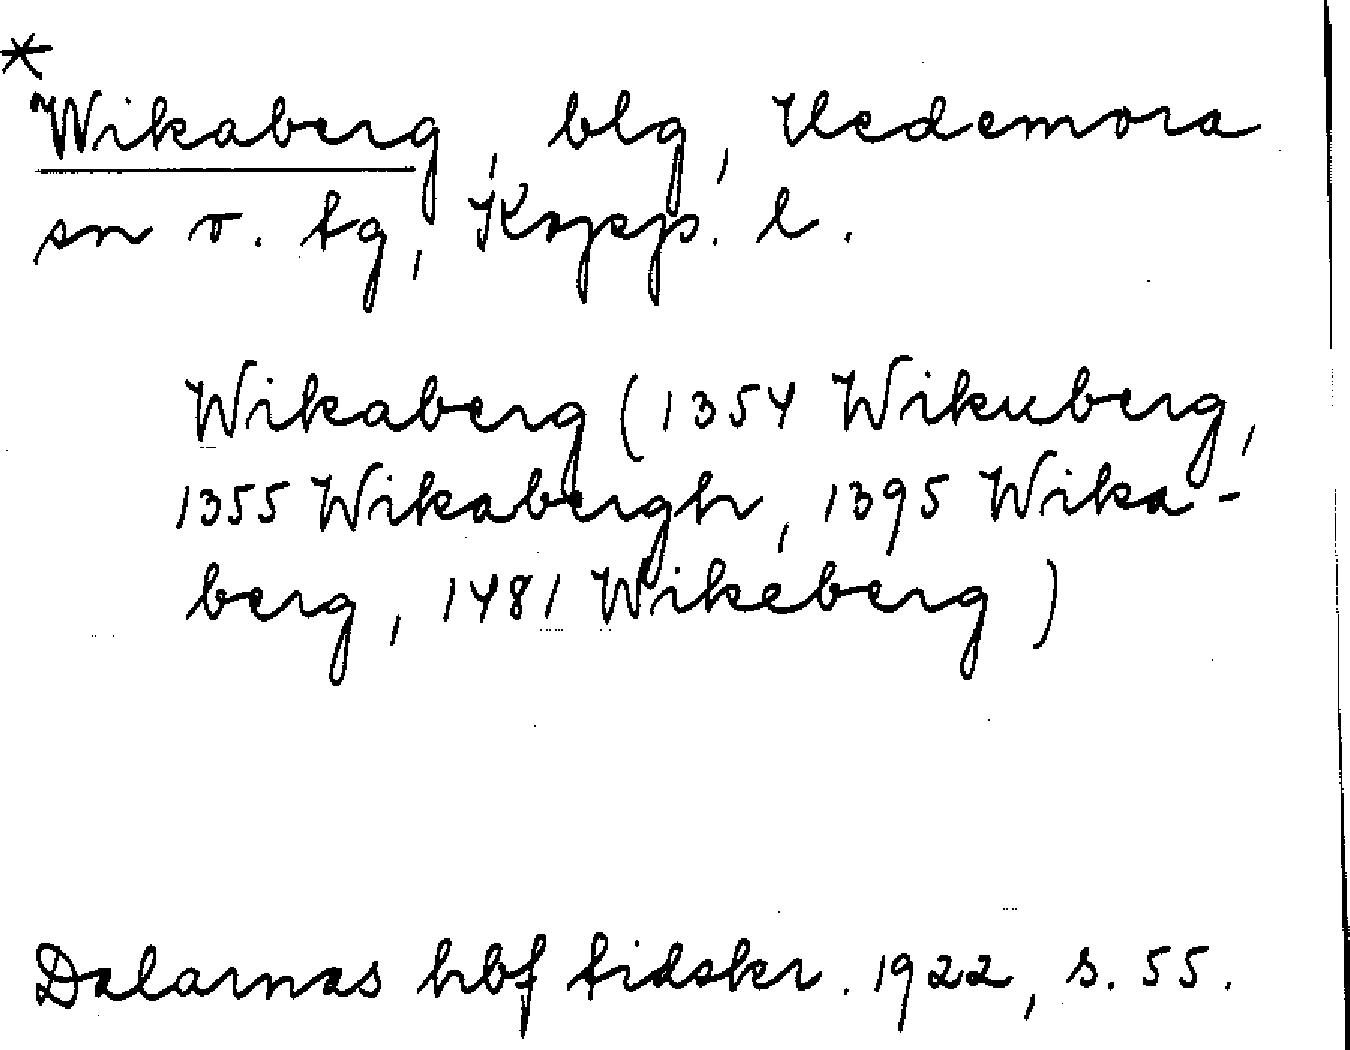 *
Wikaberg, blg, Hedemora
sn o. tg, Kopp. l.
Wikaberg (1354 Wikuberg,
1355 Wikabergh, 1395 Wika-
berg, 1481 Wikeberg)
Dalarnas hbf tidskr. 1922, s. 55.